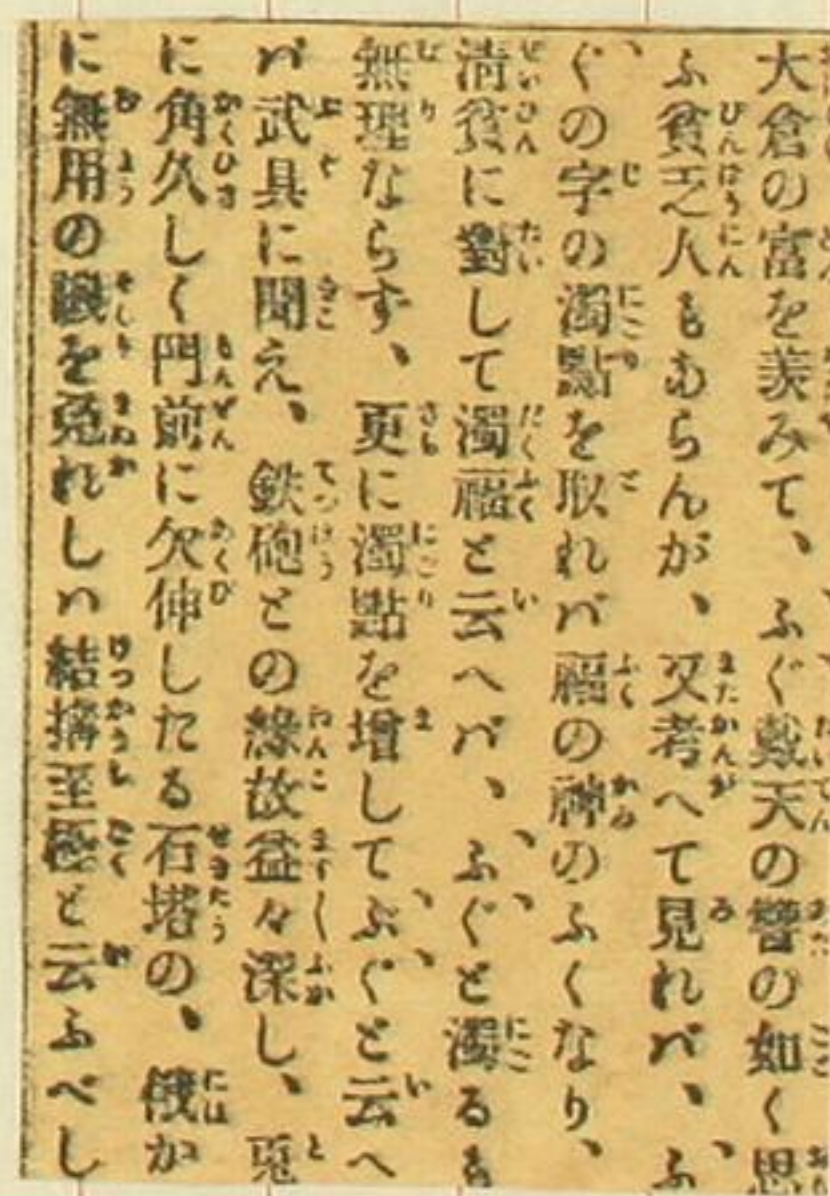 大倉の富を羨みて、ふぐ戴天の讐の如く思
ふ貧乏人もあらんが、又考へて見れバ、ふ
ぐの字の濁點を取れバ福の神のふくなり、
清貧に對して濁福と云へバ、ふぐと濁るも
無理ならず、更に濁點を増してぶぐと云へ
バ武具に聞え、鉄砲との縁故益々深し、兎
に角久しく門前に欠伸したる石塔の、俄か
に無用の譏を免れしハ結搆至極と云ふべし